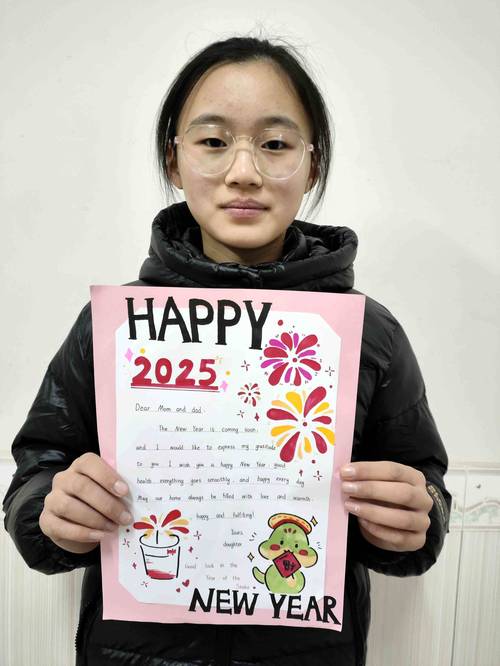 HAPPY
2025
Dear Mom and dad.
The New Year is coming soon,
and I would like to express my gratitude
to you. I wish you a happy New Year, good
health everything goes smoothly and happy every day
May our home always be filled with love and warmth.
happy and fulfilling!
Yours.
daughter
Good luck in the
Year of the
Snake
NEW YEAR